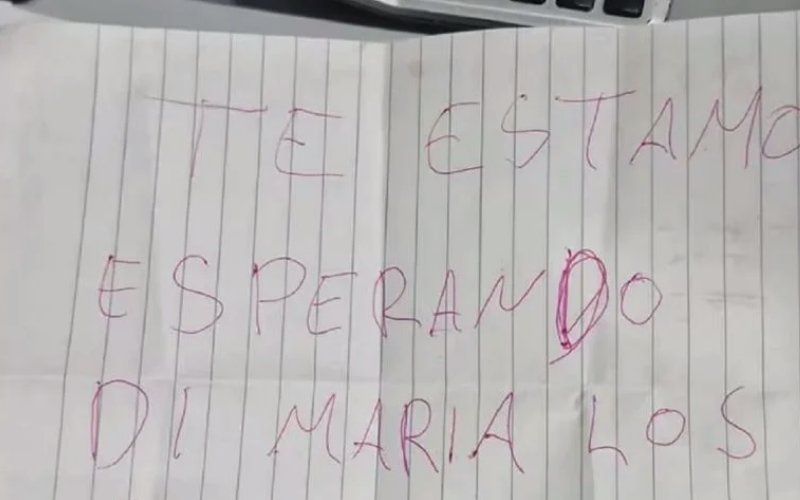 TE ESTAMO
ESPERANDO
DI MARIA LOS